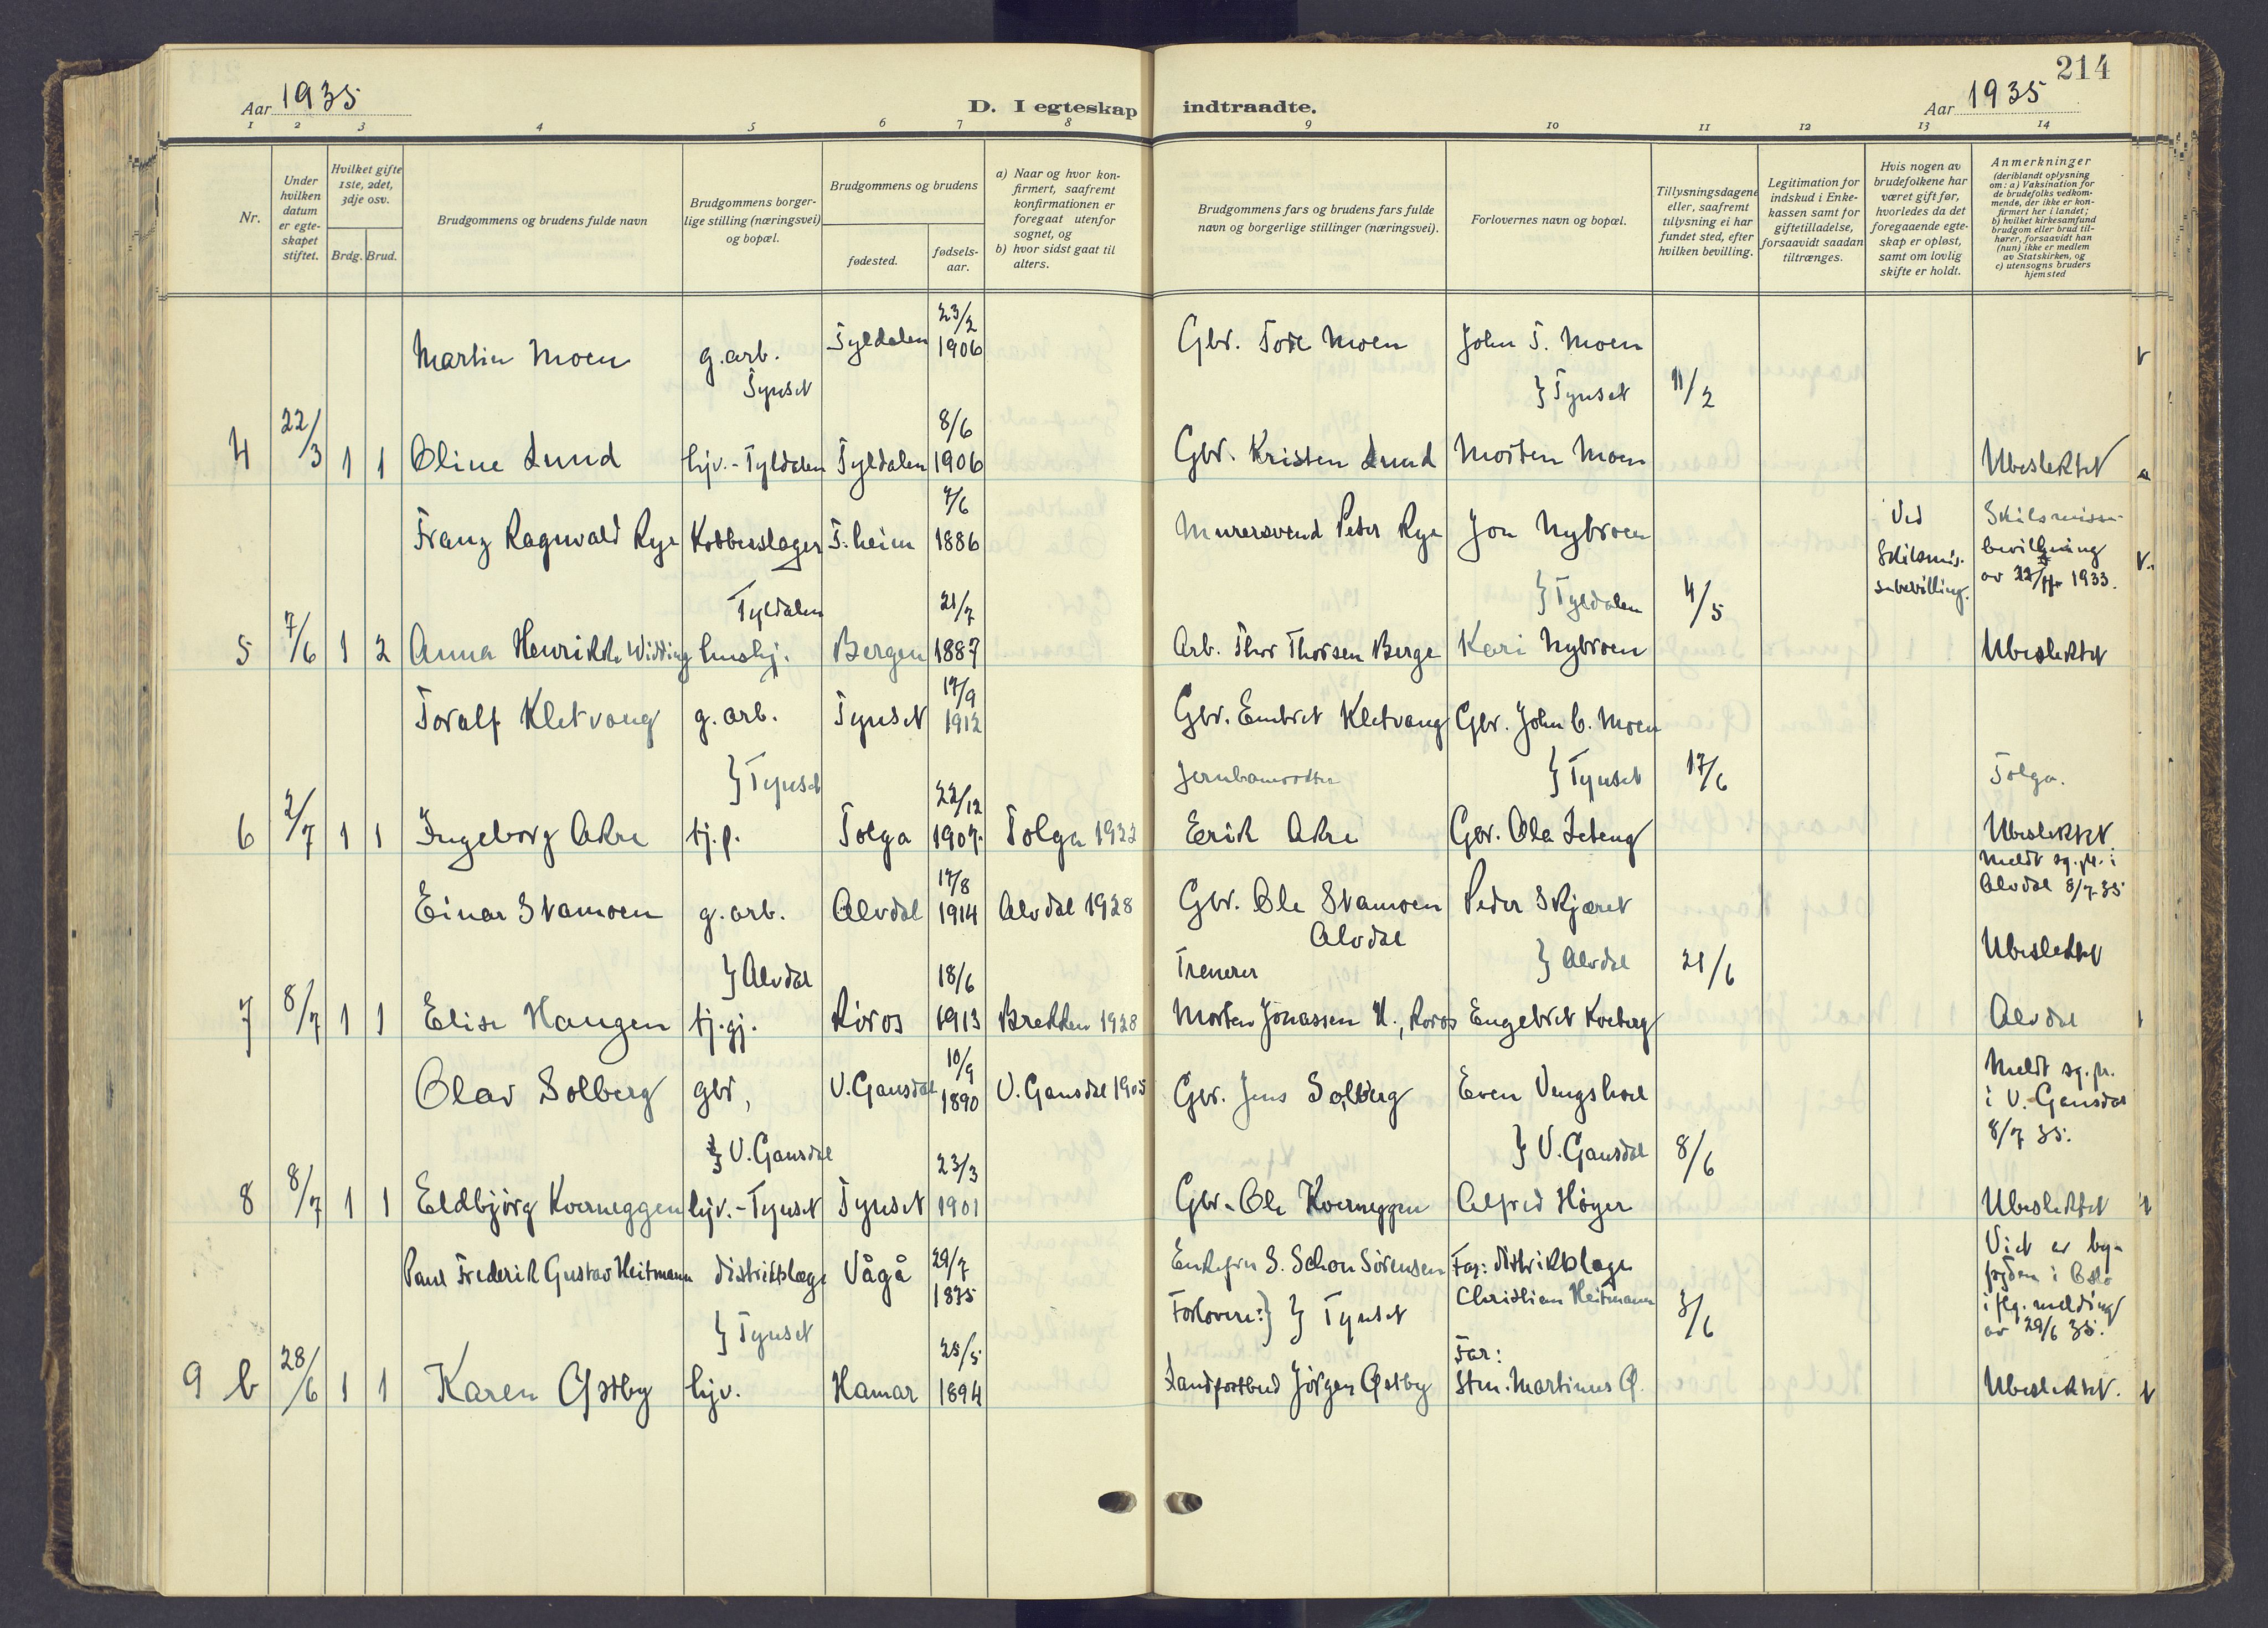 Aar 1935
D. I egteskap indtraadte.
Aar 1935
214
1 2 3 4 5 6 7 8 9 10 11 12 13 14
Nr.
Under hvilken datum er egteskapet stiftet.
Hvilket gifte 1ste, 2det, 3dje osv.
Brdg. Brud.
Brudgommens og brudens fulde navn
Brudgommens borgerlige stilling (næringsvei) og bopæl.
Brudgommens og brudens
fødested.
fødselsaar.
a) Naar og hvor konfirmert, saafremt konfirmationen er foregaat utenfor sognet, og
b) hvor sidst gaat til alters.
Brudgommens fars og brudens fars fulde navn og borgerlige stillinger (næringsvei).
Forlovernes navn og bopæl.
Tillysningsdagene eller, saafremt tillysning ei har fundet sted, efter hvilken bevilling.
Legitimation for indskud i Enkekassen samt for giftetilladelse, forsaavidt saadan tiltrænges.
Hvis nogen av brudefolkene har været gift før, hvorledes da det foregaaende egteskap er opløst, samt om lovlig skifte er holdt.
Anmerkninger (deriblandt oplysning om: a) Vaksination for de brudefolks vedkommende, der ikke er konfirmert her i landet; b) hvilket kirkesamfund brudgom eller brud tilhører, forsaavidt han (hun) ikke er medlem av Statskirken, og c) utensogns bruders hjemsted
Martin Moen g.arb. Tynset Tyldalen 23/2 1906 Gbr. Tore Moen John T. Moen
} Tynset 11/2
4 22/3 1 1 Oline Lund hjv.-Tyldalen Tyldalen 8/6 1906 Gbr. Kristen Lund Morten Moen Ubeslektet
Franz Ragnvald Rye Kobberslager T.heim 7/6 1886 Murersvend Peder Rye Jon Nybroen Ved Skilsmissebevilling. Skilsmissebevillgning av 1933.
Tyldalen } Tyldalen 4/5
5 7/6 1 2 Anna Henrikke Widding hushj. Bergen 21/7 1887 Arb. Thor Thorsen Berge Kari Nybroen Ubeslektet
Toralf Kletvang g.arb. Tynset 17/9 1912 Gbr. Embret Kletvang Gbr. John C. Moen
} Tynset } Tynset 17/6 Tolga.
6 2/7 1 1 Ingeborg Akre tj.p. Tolga 22/12 1907. Tolga 1922 Erik Akre Gbr. Ola Leteng Ubeslektet
Einar Stamoen g.arb. Alvdal 17/8 1914 Alvdal 1928 Gbr. Ole Stamoen Alvdal Peder Skjæret Meldt sg.pr. i Alvdal 8/7 35
} Alvdal } Alvdal 21/6 Ubeslektet
7 8/7 1 1 Elise Haugen tj.gj. Röros 18/6 1913 Brekken 1928 Morten Jonassen H., Roros Engebret Kveberg Alvdal
Olav Solberg gbr, V.Gausdal 10/9 1890 V.Gausdal 1905 Gbr. Jens Solberg Even Vengshoel Meldt sg.pr. i V.Gausdal 8/7 35.
} V.Gausdal } V.Gausdal 8/6
8 8/7 1 1 Eldbjörg Kverneggen hjv.-Tynset Tynset 23/3 1901 Gbr. Ole Kverneggen Alfred Höyer Ubeslektet
Paul Frederik Gustav Heitmann distriktslæge Vågå 29/7 1875 Enkefru S. Schou Sörensen Far: distriktslæge Christian Heitmann Viet av byfogden i Oslo iflg. melding av 29/6 35.
} Tynset Forlovere: } } Tynset 3/6
9 b 28/6 1 1 Karen Østby hjv. Hamar 25/5 1894 Landpostbud Jörgen Østby Far: Stm. Martinus Ø. Ubeslektet.